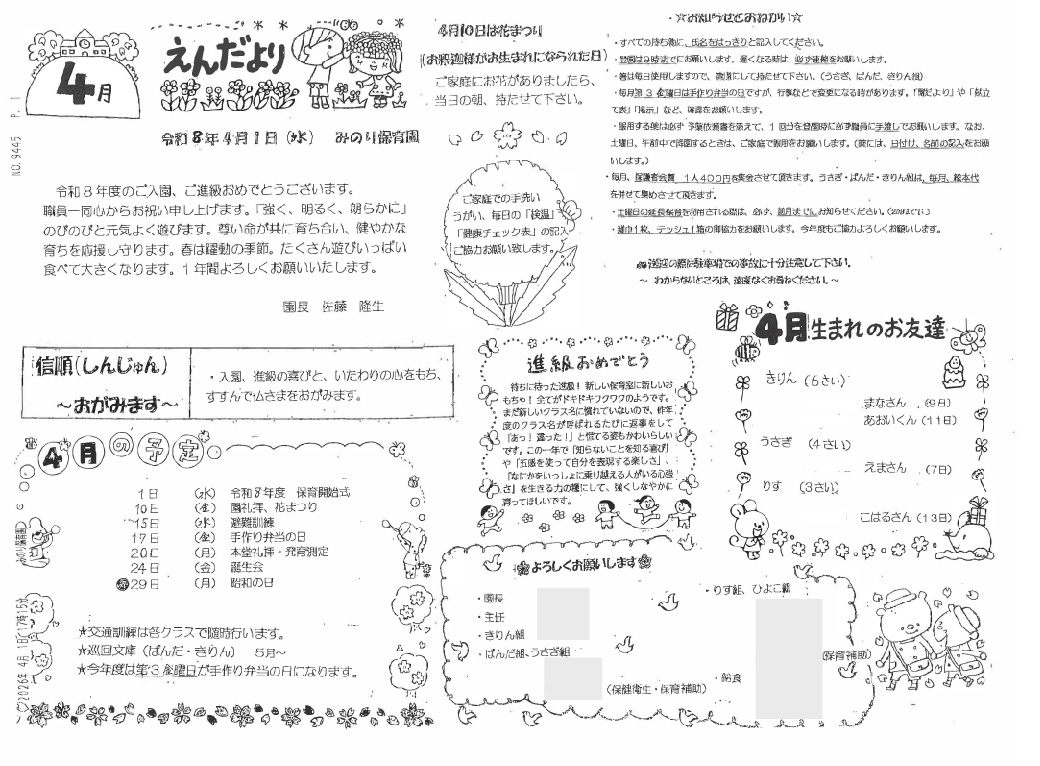 4月
えんだより
令和8年4月1日(水) みのり保育園
NO. 9445 P. 1
4月10日は花まつり
(お釈迦様がお生まれになられた日)
ご家庭にお花がありましたら、
当日の朝、持たせて下さい。
令和8年度のご入園、ご進級おめでとうございます。
職員一同心からお祝い申し上げます。「強く、明るく、朗らかに」
のびのびと元気よく遊びます。尊い命が共に育ち合い、健やかな
育ちを応援し守ります。春は躍動の季節。たくさん遊びいっぱい
食べて大きくなります。1年間よろしくお願いいたします。
園長 佐藤 隆生
ご家庭での手洗い
うがい、毎日の「検温」
「健康チェック表」の記入
ご協力お願い致します。
・☆お知らせとおねがい☆
・すべての持ち物に、氏名をはっきりと記入してください。
・登園は9時までにお願いします。遅くなる時は、必ず連絡をお願いします。
・箸は毎日使用しますので、清潔にして持たせて下さい。(うさぎ、ぱんだ、きりん組)
・毎月第3金曜日は手作り弁当の日ですが、行事などで変更になる時があります。「園だより」や「献立
て表」「掲示」など、確認をお願いします。
・服用する時は必ず予薬依頼書を添えて、1回分を登園時に必ず職員に手渡しでお願いします。なお、
土曜日、午前中で降園するときは、ご家庭で服用をお願いします。(薬には、日付け、名前の記入をお願
いします。)
・毎月、保護者会費 1人400円を集金させて頂きます。うさぎ・ぱんだ・きりん組は、毎月、絵本代
を併せて集めさせて頂きます。
・土曜日の延長保育を利用される際は、必ず、前月までにお知らせください。
・雑巾1枚、テッシュ1箱の御協力をお願いします。今年度もご協力よろしくお願いします。
送迎の際は駐車場での事故に十分注意して下さい。
~ わからないところは、遠慮なくお尋ねください。~
信順(しんじゅん)
~おがみます~
・入園、進級の喜びと、いたわりの心をもち、
すすんで仏さまをおがみます。
進級おめでとう
待ちに待った進級!新しい保育室に新しいお
もちゃ!全てがドキドキワクワクのようです。
まだ新しいクラス名に慣れていないので、昨年
度のクラス名が呼ばれるたびに返事をして
「あっ!違った!」と慌てる姿もかわいらしい
です。この一年で「知らないことを知る喜び」
や「五感を使って自分を表現する楽しさ」、
「なにかをいっしょに乗り越える人がいる心強
さ」を生きる力の糧にして、強くしなやかに
育ってほしいです。
4月生まれのお友達
きりん (6さい)
まなさん (9日)
あおいくん (11日)
うさぎ (4さい)
えまさん (7日)
りす (3さい)
こはるさん (13日)
4月の予定
1日 (水) 令和8年度 保育開始式
10日 (金) 園礼拝、花まつり
15日 (水) 避難訓練
17日 (金) 手作り弁当の日
20日 (月) 本堂礼拝・発育測定
24日 (金) 誕生会
祝29日 (月) 昭和の日
★交通訓練は各クラスで随時行います。
★巡回文庫(ぱんだ・きりん) 5月~
★今年度は第3金曜日が手作り弁当の日になります。
みのり保育園
2026年 4月 1日(17時15分
よろしくお願いします
・園長
・主任
・きりん組
・ぱんだ組、うさぎ組
(保健衛生・保育補助)
・りす組、ひよこ組
(保育補助)
・給食